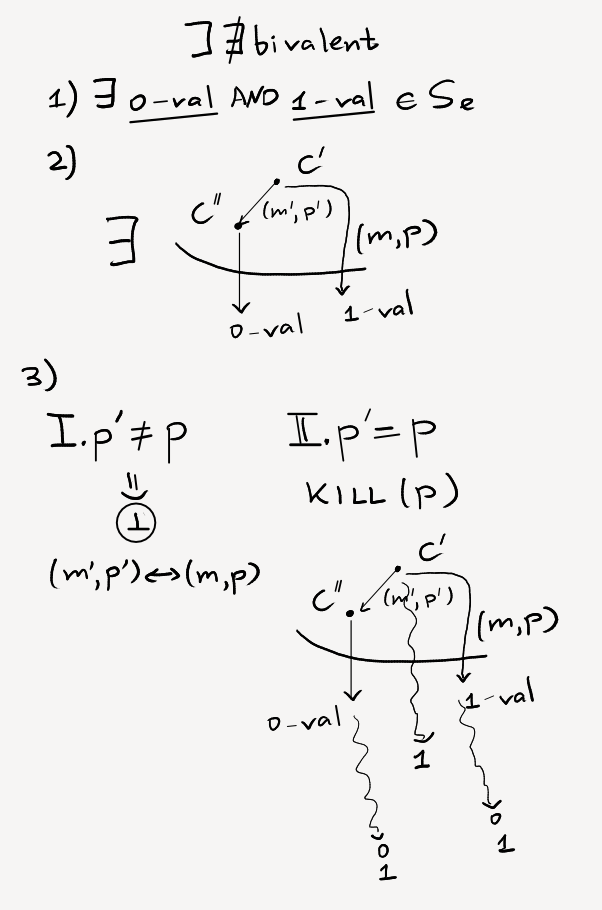 ∃ ∄ bivalent
1) ∃ 0-val AND 1-val ∈ Se
2)
C'
C''
(m', p')
∃
(m, p)
0-val
1-val
3)
I. p' ≠ p
II. p' = p
⇓
KILL (p)
⊥
(m', p') ↔ (m, p)
C'
C''
(m', p')
(m, p)
0-val
1-val
1
0
1
0
1